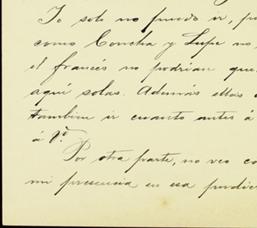 Yo solo no puedo ir, p
como Concha y Lupe no
el francés no podrian que
aquí solas. Además ellas
tambien ir cuanto antes á
á Vd.
Por otra parte, no veo co
mi presencia en esa pudie